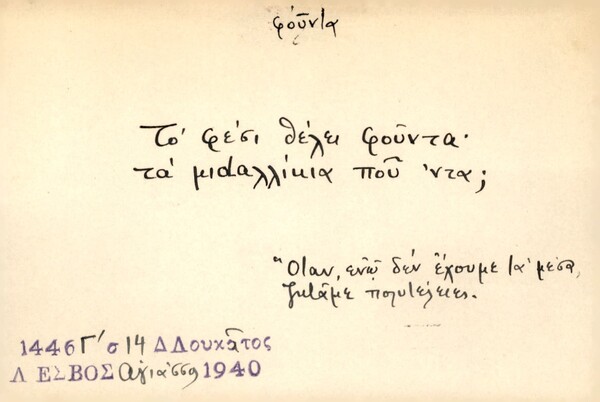 φούντα
Τό φέσι θέλει φοῦντα·
τά μιdαλλίκια ποῦ 'ντα;
"Όταν, ἐνῷ δέν ἔχουμε τά μέσα,
ζητᾶμε πολυτέλειες.
1446 Γ' σ 14 Δ Λουκᾶτος
ΛΕΣΒΟΣ Ἁγιάσσο 1940